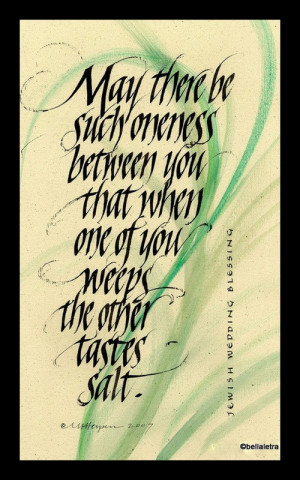 May there be
such oneness
between you
that when
one of you
weeps
the other
tastes
salt.
2007
JEWISH WEDDING BLESSING
©bellaletra